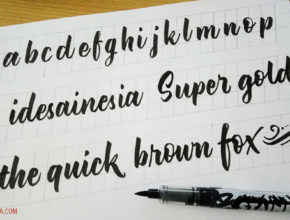 a b c d e f g h i j k l m n o p
idesainesia Super gold
the quick brown fox